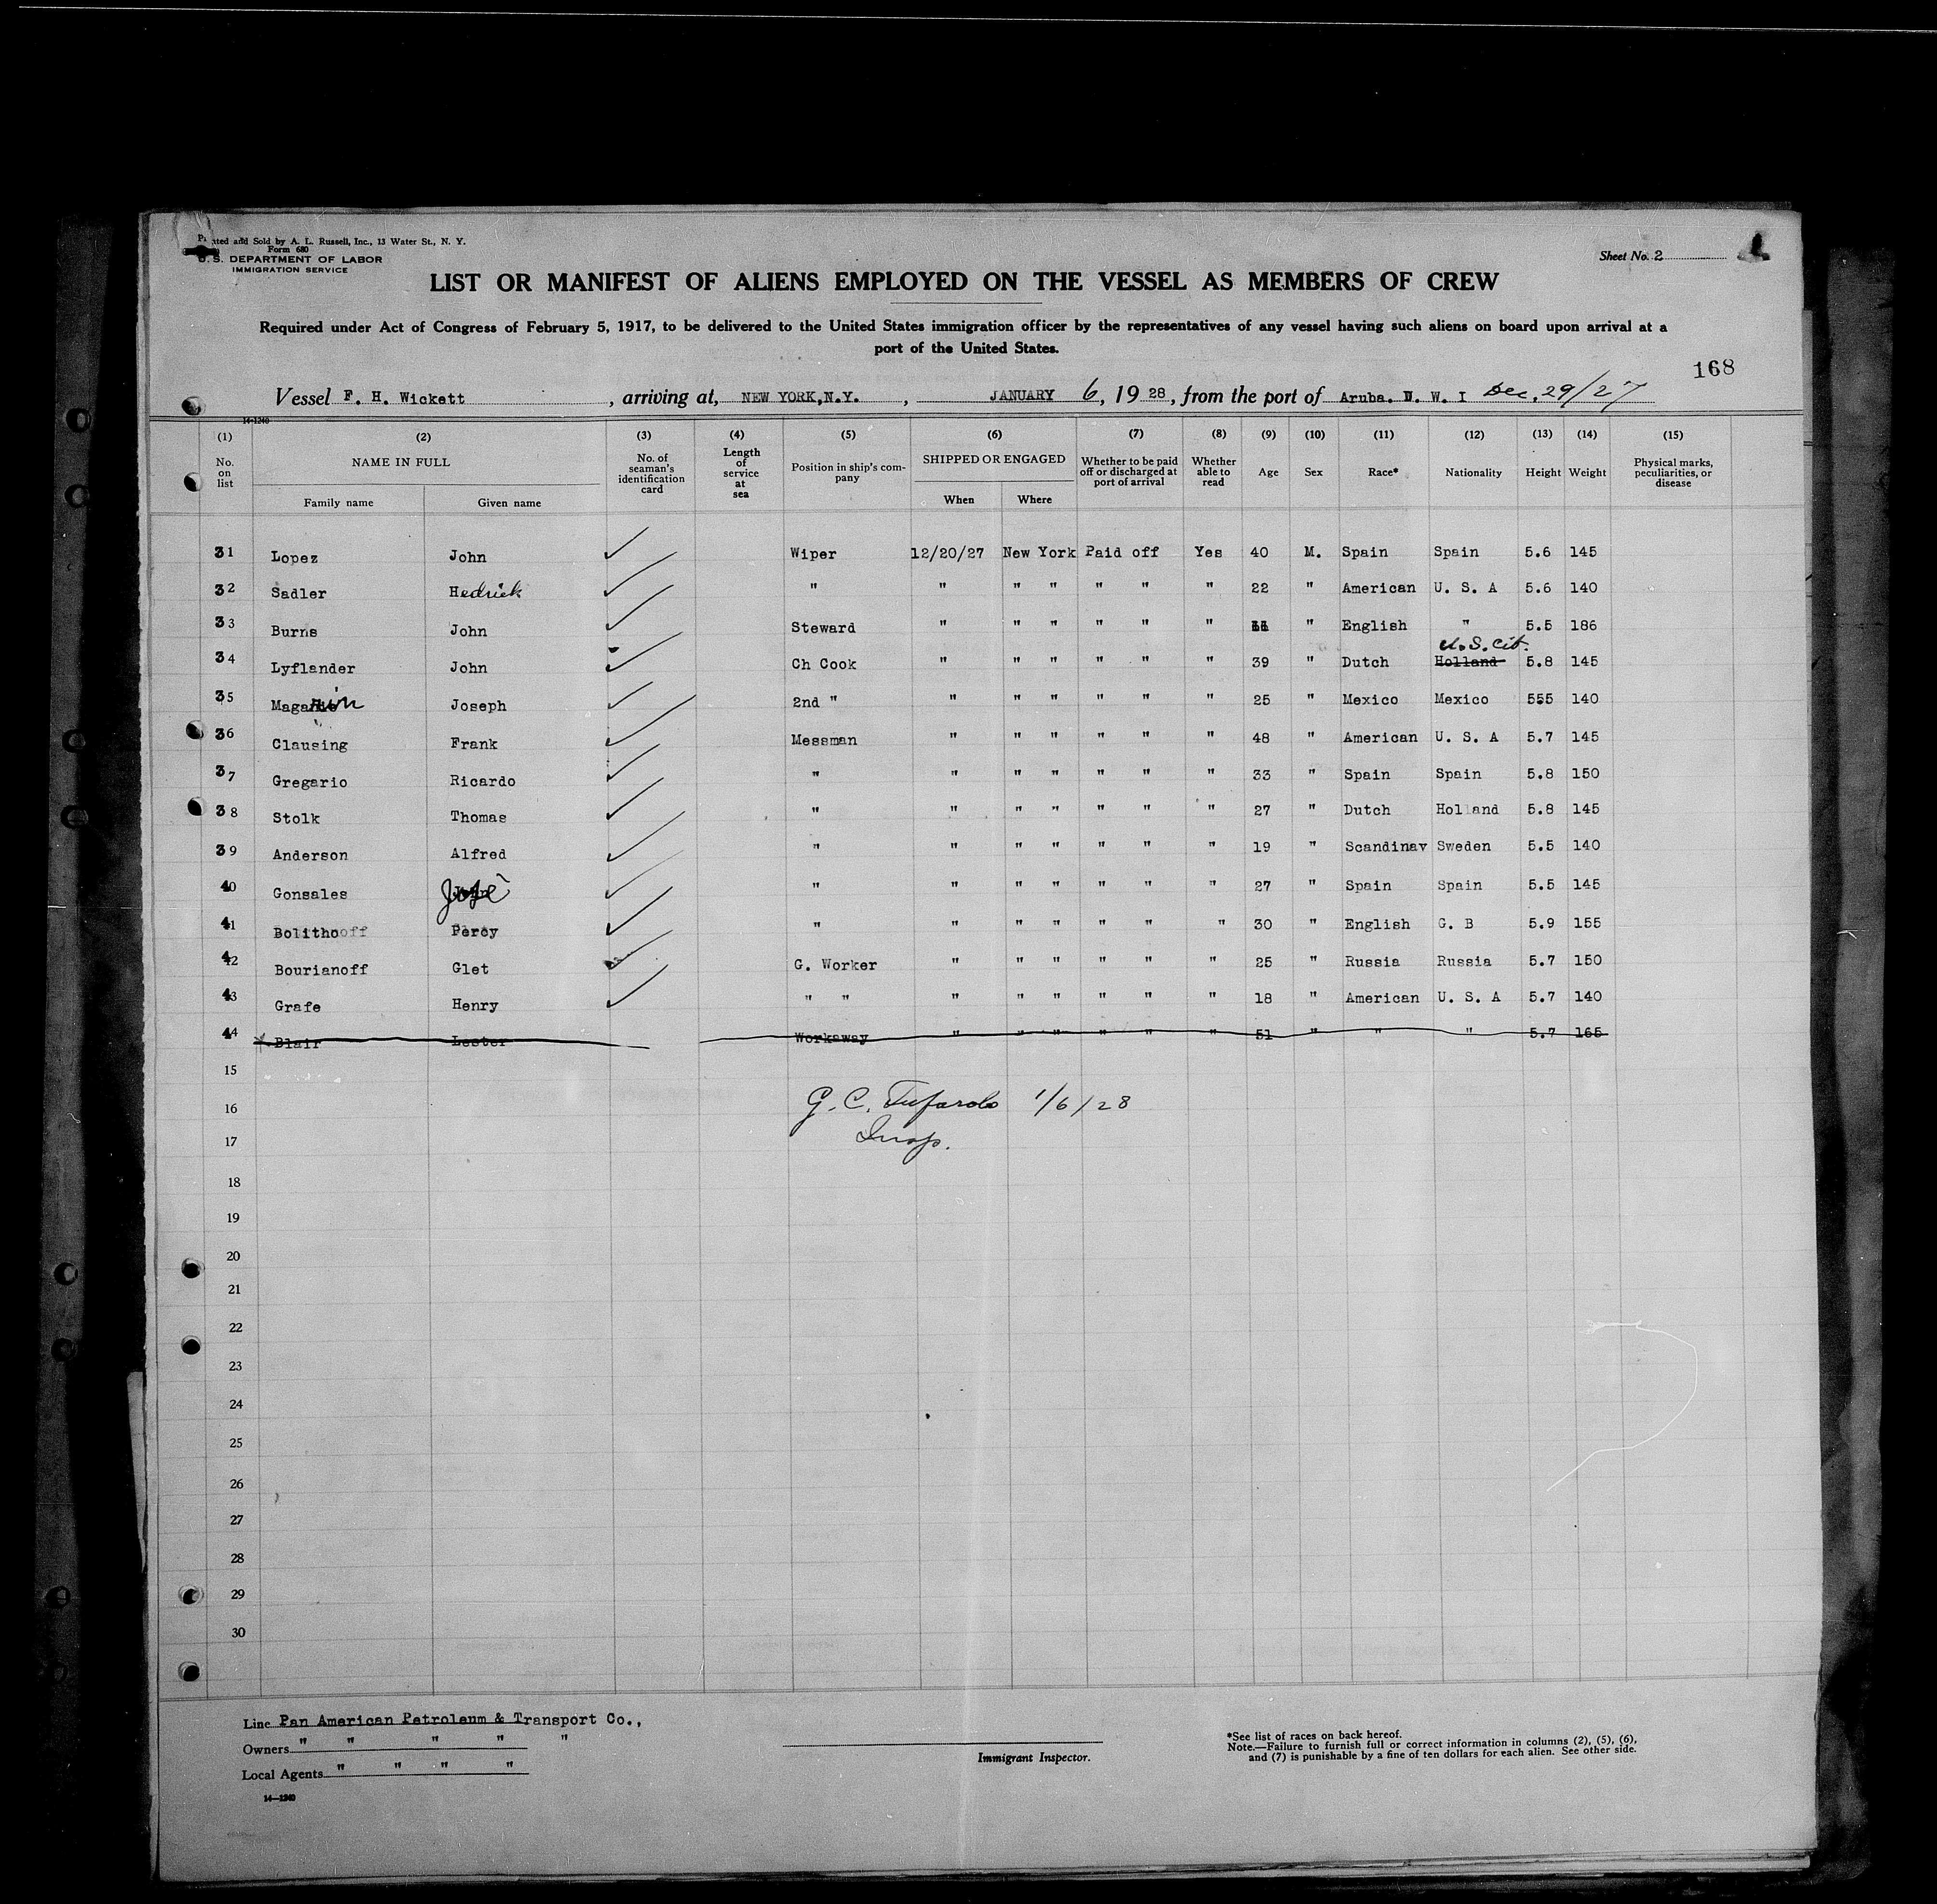 Printed and Sold by A. L. Russell, Inc., 13 Water St., N. Y.
Form 680
U. S. DEPARTMENT OF LABOR
IMMIGRATION SERVICE
Sheet No. 2
LIST OR MANIFEST OF ALIENS EMPLOYED ON THE VESSEL AS MEMBERS OF CREW
Required under Act of Congress of February 5, 1917, to be delivered to the United States immigration officer by the representatives of any vessel having such aliens on board upon arrival at a
port of the United States.
168
Vessel F. H. Wickett, arriving at, NEW YORK,N.Y., JANUARY 6, 19 28, from the port of Aruba. D. W. I Dec, 29/27
14-1240
(1) (2) (3) (4) (5) (6) (7) (8) (9) (10) (11) (12) (13) (14) (15)
No. on list NAME IN FULL Family name Given name No. of seaman's identification card Length of service at sea Position in ship's company SHIPPED OR ENGAGED When Where Whether to be paid off or discharged at port of arrival Whether able to read Age Sex Race* Nationality Height Weight Physical marks, peculiarities, or disease
31 Lopez John Wiper 12/20/27 New York Paid off Yes 40 M. Spain Spain 5.6 145
32 Sadler Hedrick " " " " " " " 22 " American U. S. A 5.6 140
33 Burns John Steward " " " " " " " English " 5.5 186
U.S. Cit.
34 Lyflander John Ch Cook " " " " " " 39 " Dutch Holland 5.8 145
35 Joseph 2nd " " " " " " " 25 " Mexico Mexico 555 140
36 Clausing Frank Messman " " " " " " 48 " American U. S. A 5.7 145
37 Gregario Ricardo " " " " " " " 33 " Spain Spain 5.8 150
38 Stolk Thomas " " " " " " " 27 " Dutch Holland 5.8 145
39 Anderson Alfred " " " " " " " 19 " Scandinav Sweden 5.5 140
40 Gonsales José " " " " " " " 27 " Spain Spain 5.5 145
41 Bolithooff Percy " " " " " " " 30 " English G. B 5.9 155
42 Bourianoff Glet G. Worker " " " " " " 25 " Russia Russia 5.7 150
43 Grafe Henry " " " " " " " " 18 " American U. S. A 5.7 140
44 Blair Lester Workaway " " " " " " 51 " " " 5.7 165
15
16 G. C. Tufarolo 1/6/28
17 Insp.
18
19
20
21
22
23
24
25
26
27
28
29
30
Line Pan American Petroleum & Transport Co.,
Owners " " " " "
Local Agents " " " "
14—1240
Immigrant Inspector.
*See list of races on back hereof.
Note.—Failure to furnish full or correct information in columns (2), (5), (6),
and (7) is punishable by a fine of ten dollars for each alien. See other side.